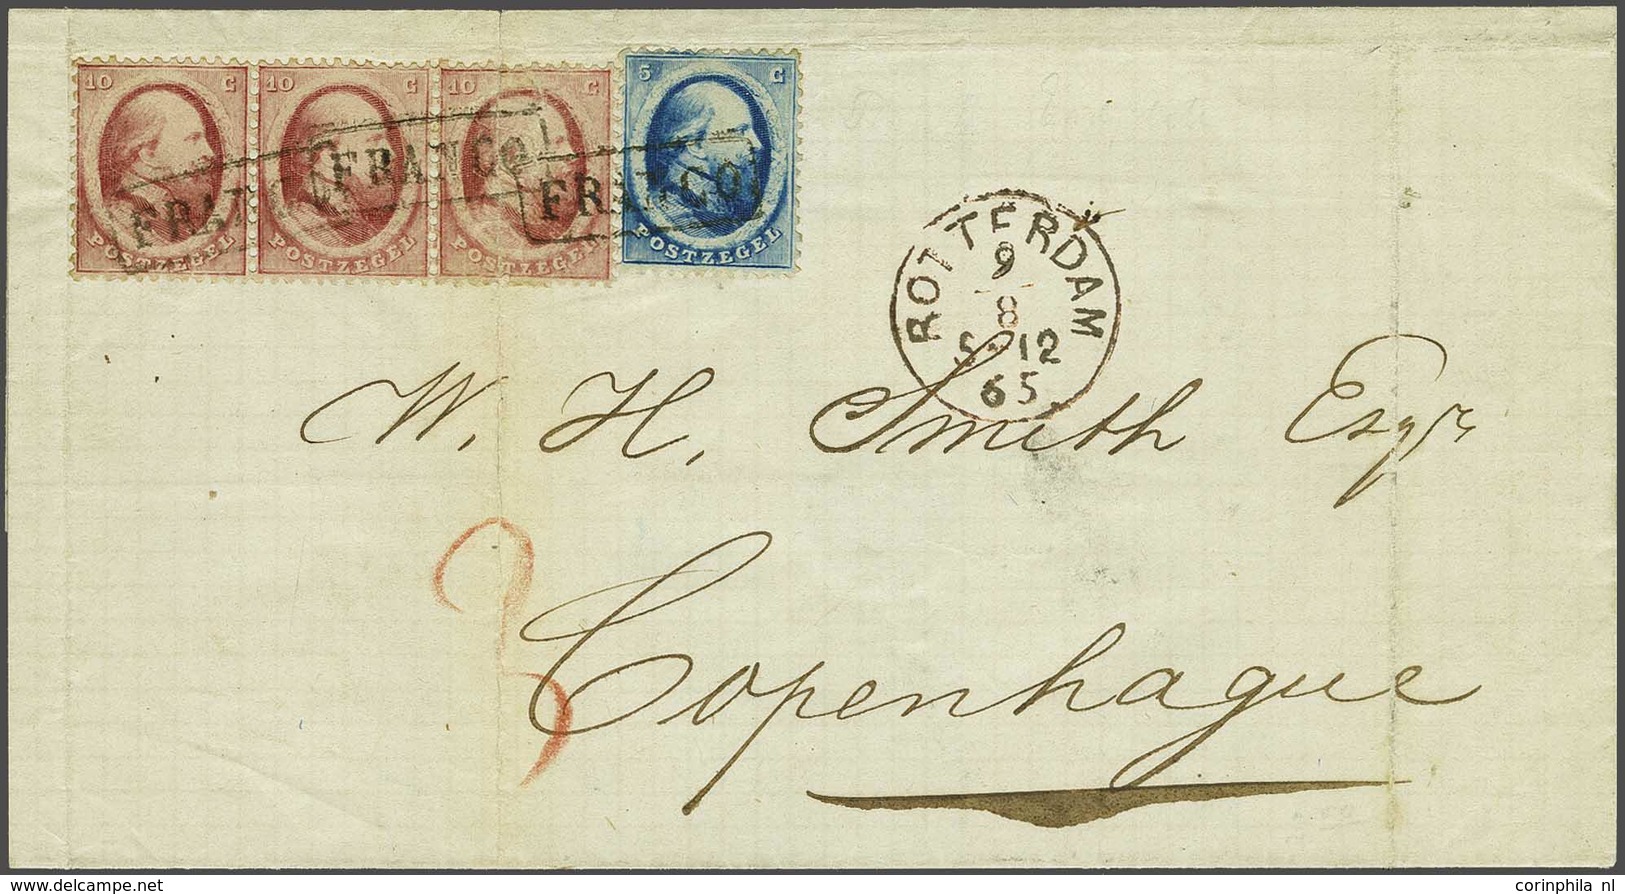 10 C 10 C 10 C 5 C
FRANCO FRANCO FRANCO
POSTZEGEL POSTZEGEL POSTZEGEL POSTZEGEL
ROTTERDAM
9
8
5-12
65
W. H. Smith Esqr
3
Copenhague
www.delcampe.net
corinphila nl